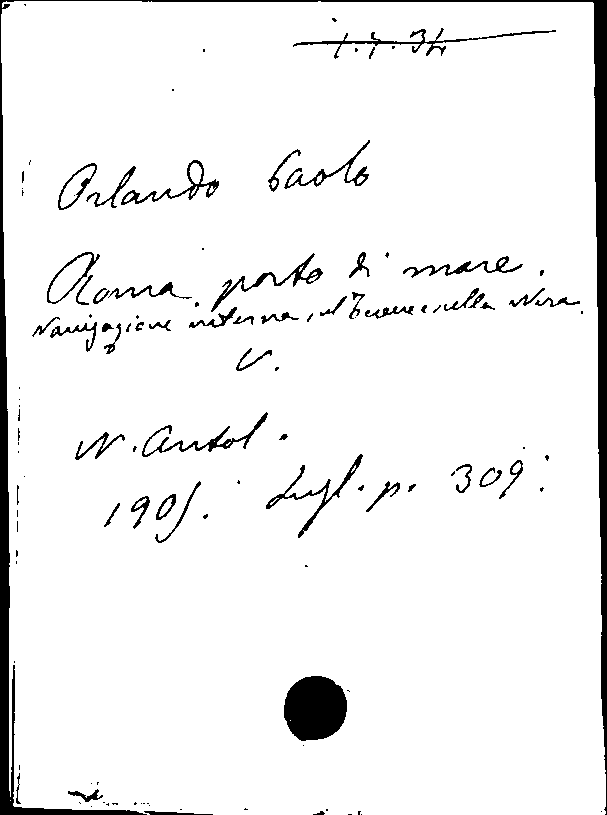 1.7.34
Orlando Paolo
Roma porto di mare.
Navigazione interna, sul Tevere e sulla Nera.
V.
N. Antol.
1905. Lugl. p. 309.